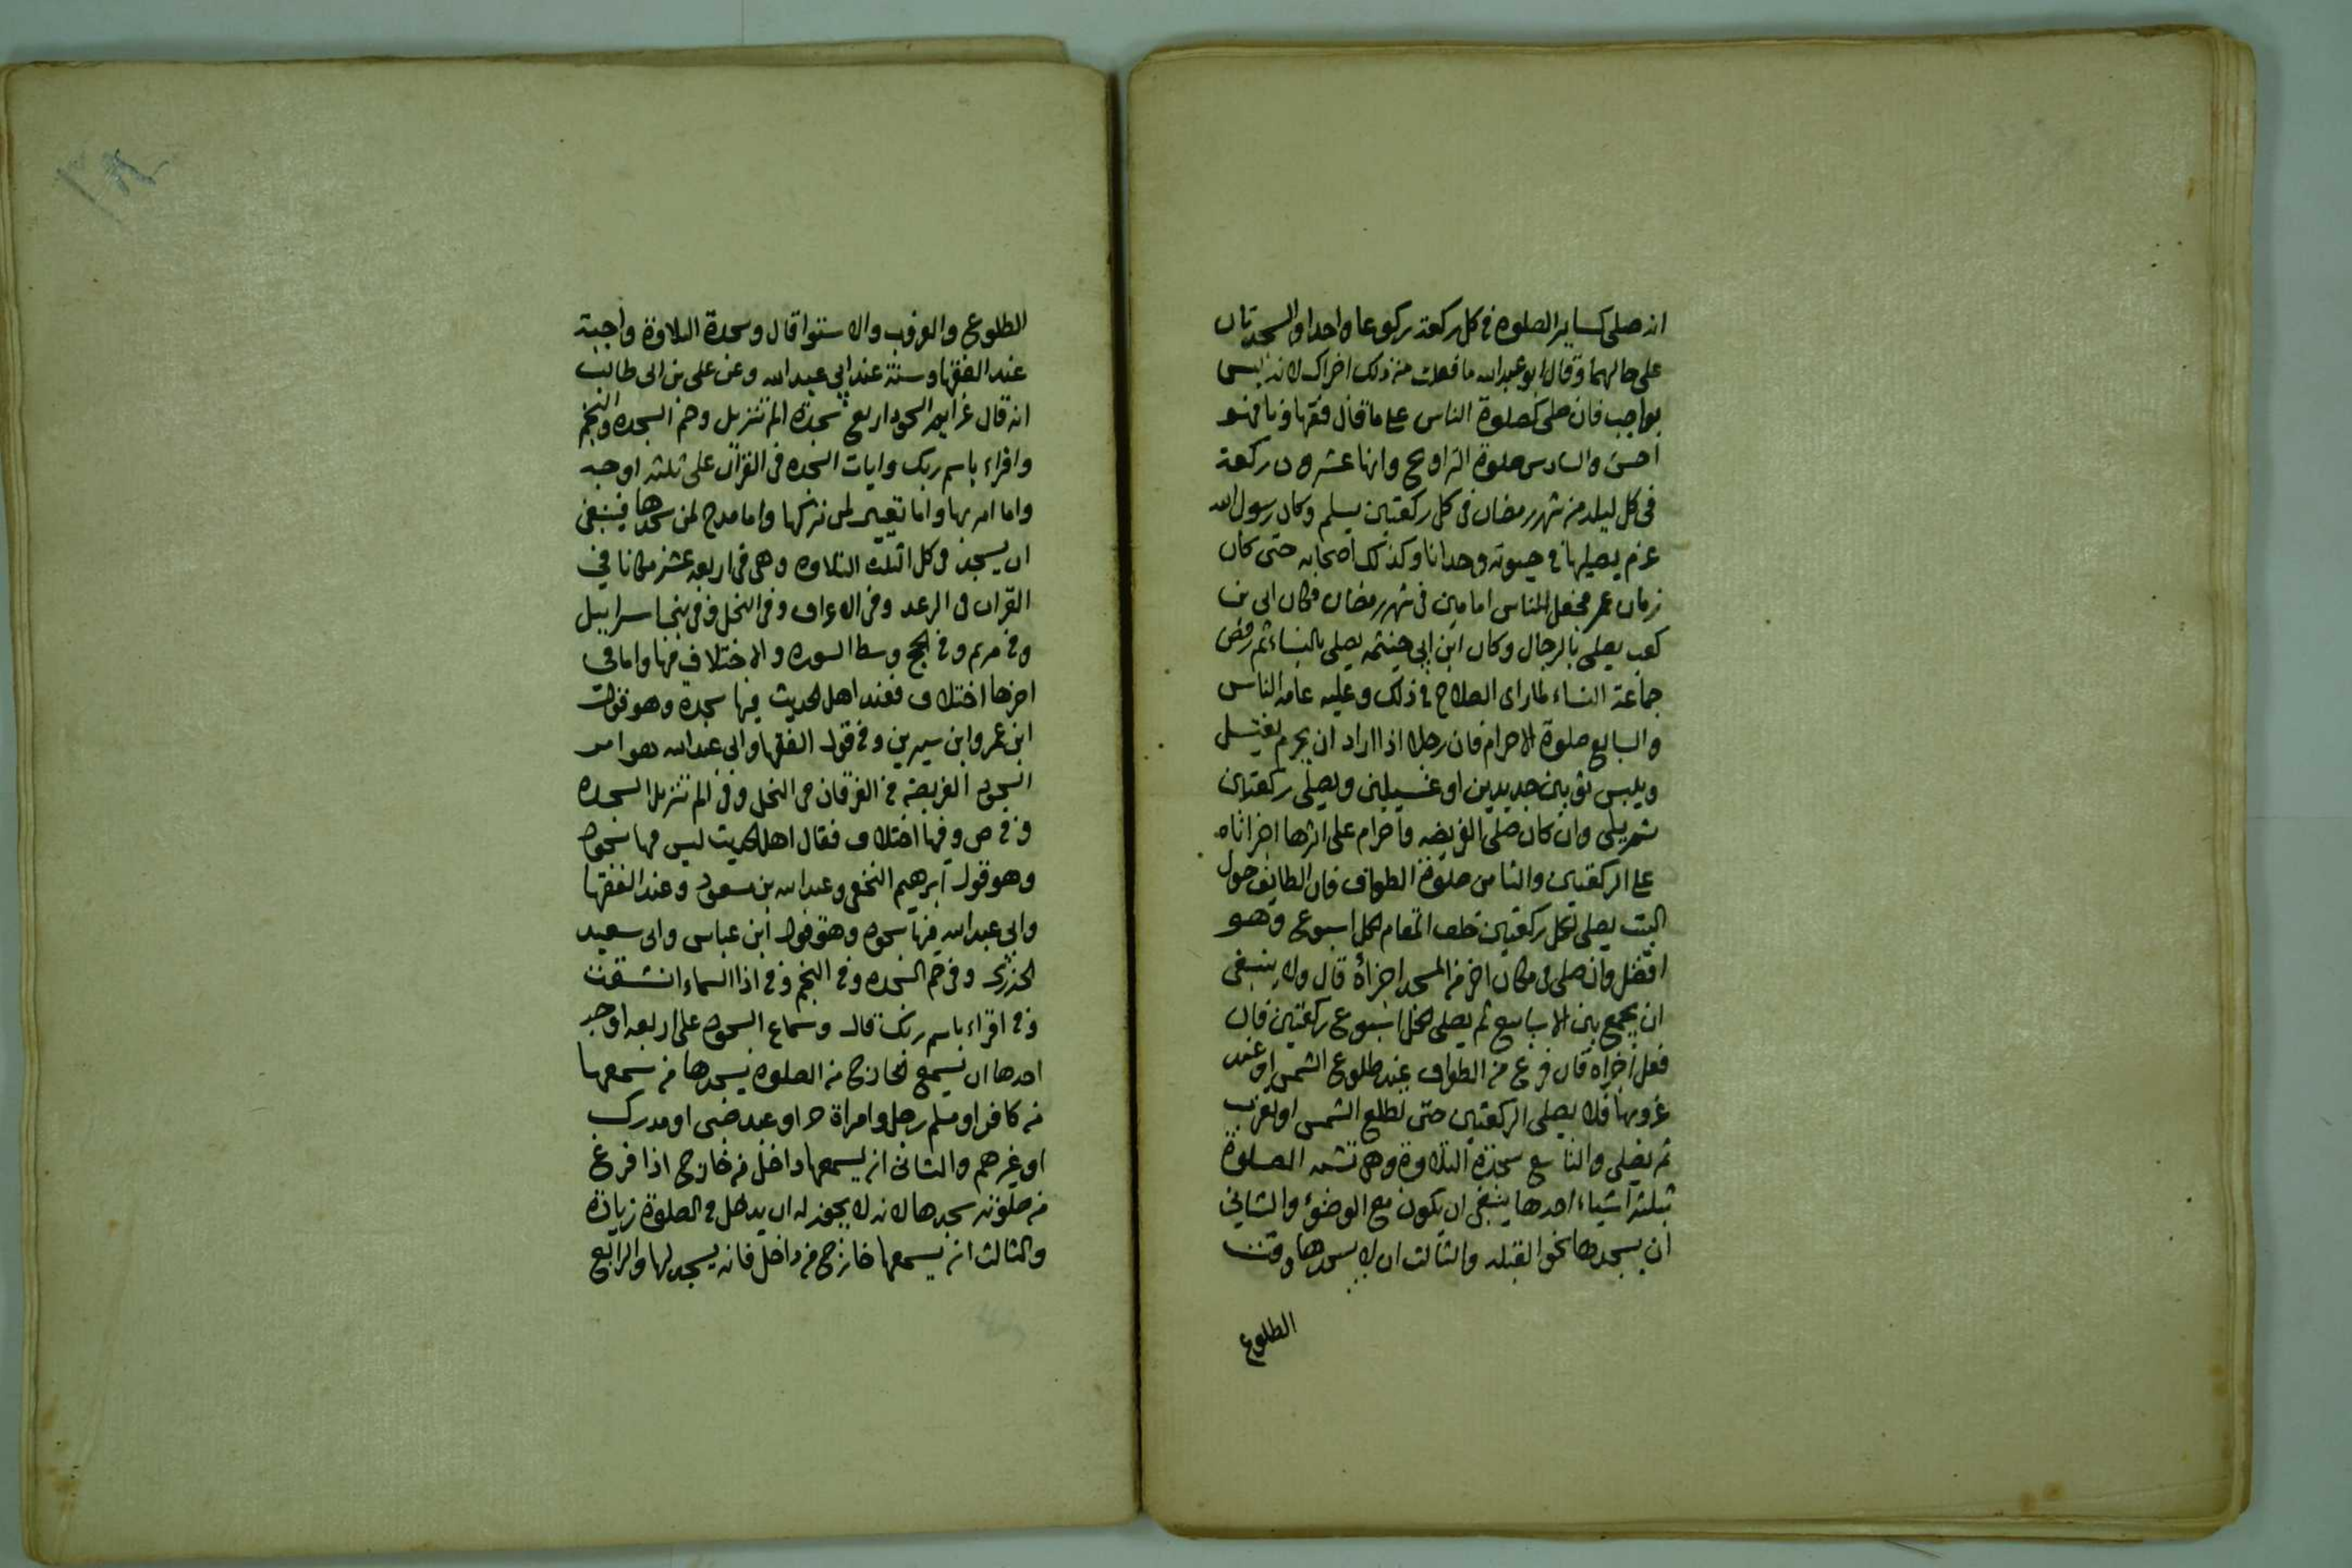 انه صلى كساير الصلوة في كل ركعة ركوعا واحدا والسجدتان
على حالهما وقال ابو عبد الله ما فعلت من ذلك اجزاك لانه ليس
بواجب فان صلى كصلوة الناس على ما قال فقهاؤنا فهو
احسن والسادس صلوة التراويح وانها عشرون ركعة
في كل ليله من شهر رمضان في كل ركعتين يسلم وكان رسول الله
عم يصليها في حيوته وحدانا وكذلك اصحابه حتى كان
زمان عمر فجعل للناس امامين في شهر رمضان فكان ابى بن
كعب يصلى بالرجال وكان ابن ابي حيثمه يصلى بالنساء ثم رفض
جماعة النساء لما راى الصلاح في ذلك وعليه عامه الناس
والسابع صلوة الاحرام فان رجلا اذا اراد ان يحرم يغتسل
ويلبس ثوبين جديدين او غسيلين ويصلى ركعتين
ثم يلبى وان كان صلى الفريضه واحرام على اثرها اجزاتاه
على الركعتين والثامن صلوة الطواف فان الطايف حول
البيت يصلى لكل ركعتين خلف المقام لكل اسبوع وهو
افضل وان صلى في مكان اخر من المسجد اجزاه قال ولا ينبغى
ان يجمع بين الاسابيع ثم يصلى لكل اسبوع ركعتين فان
فعل اجزاه فان فرغ من الطواف عند طلوع الشمس او عند
غروبها فلا يصلى الركعتين حتى تطلع الشمس او تغرب
ثم يصلى والتاسع سجدة التلاوة وهي تشبه الصلوة
بثلثة اشياء احدها ينبغى ان يكون مع الوضوء والثاني
ان يسجدها نحو القبله والثالث ان لا يسجدها وقت
الطلوع
الطلوع والغروب والاستوا قال وسجدة التلاوة واجبة
عند الفقها وسنة عند ابي عبد الله وعن على بن ابى طالب
انه قال عزايم السجود اربع سجدة الم تنزيل وحم السجده والنجم
واقراء باسم ربك وايات السجده في القرآن على ثلثه اوجه
واما امر بها واما تعيير لمن تركها واما مدح لمن سجدها فينبغى
ان يسجد في كل اتلت التلاوه وهي في اربعة عشر مكانا في
القران في الرعد وفي الاعراف وفي النحل وفي بني اسراييل
وفي مريم وفي الحج وسط السوره والاختلاف فيها واما في
اخرها اختلاف فعند اهل الحديث فيها سجدة وهو قول
ابن عمر وابن سيرين وفي قول الفقها وابى عبد الله هو امر
السجود الفريضة في الفرقان في النمل وفي الم تنزيل السجده
وفي ص وفيها اختلاف فقال اهل الحديث ليس فيها سجود
وهو قول ابرهيم النخعى وعبد الله بن مسعود وعند الفقها
وابى عبد الله فيها سجود وهو قول ابن عباس وابى سعيد
الخدرى وفي حم السجده وفي النجم وفي اذا السماء انشقت
وفي اقراء باسم ربك قال وسماع السجود على اربعه اوجه
احدها ان يسمع الخارج من الصلوة يسجدها من سمعها
من كافر او مسلم رجل وامراة حر او عبد صبى او مدرك
او غيرهم والثانى ان يسمعها داخل من خارج اذا فرغ
من صلوته سجدها لانه لا يجوز له ان يدخل في الصلوة زيادة
والثالث ان يسمعها خارج من داخل فانه يسجد لها والرابع